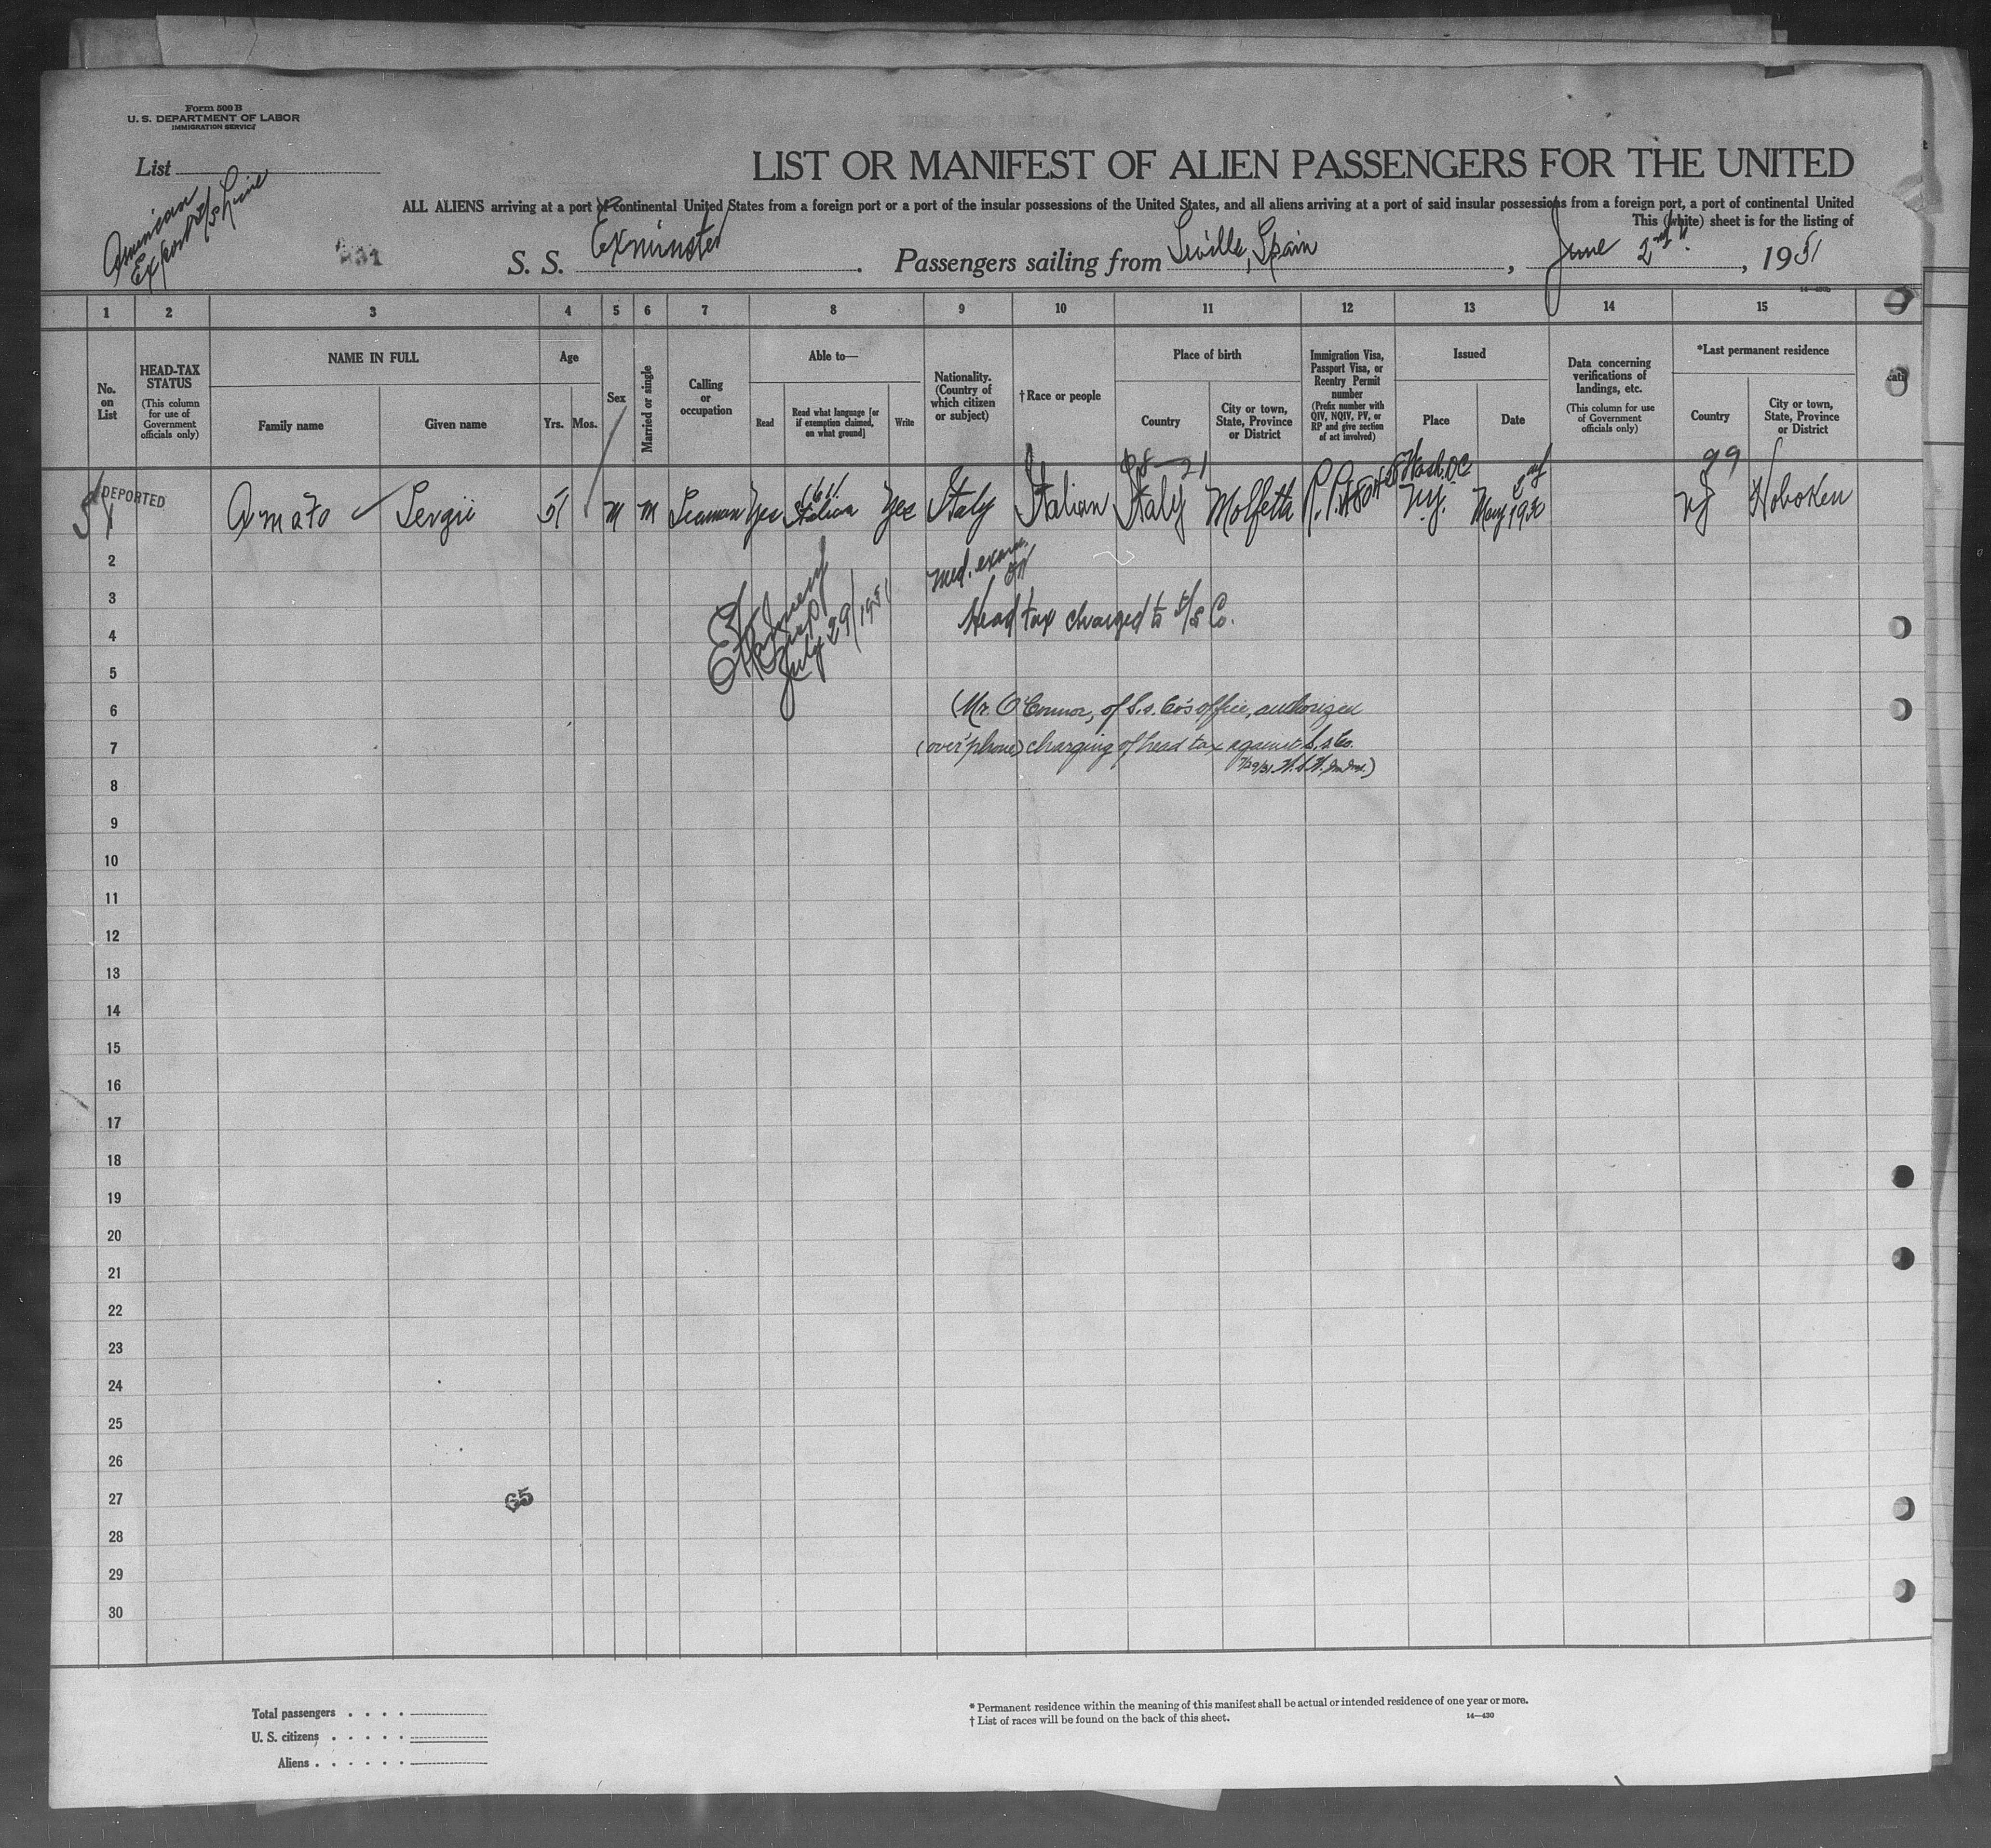 Form 500 B
U. S. DEPARTMENT OF LABOR
IMMIGRATION SERVICE
List
American
Export S/S Line
231
LIST OR MANIFEST OF ALIEN PASSENGERS FOR THE UNITED
ALL ALIENS arriving at a port of continental United States from a foreign port or a port of the insular possessions of the United States, and all aliens arriving at a port of said insular possessions from a foreign port, a port of continental United
This (white) sheet is for the listing of
S. S. Exminster. Passengers sailing from Seville, Spain, June 2nd, 1931
1 2 3 4 5 6 7 8 9 10 11 12 13 14 15
No. on List
HEAD-TAX STATUS (This column for use of Government officials only)
NAME IN FULL
Family name
Given name
Age
Yrs. Mos.
Sex
Married or single
Calling or occupation
Able to—
Read
Read what language [or if exemption claimed, on what ground]
Write
Nationality. (Country of which citizen or subject)
†Race or people
Place of birth
Country
City or town, State, Province or District
Immigration Visa, Passport Visa, or Reentry Permit number
(Prefix number with QIV, NQIV, PV, or RP and give section of act involved)
Issued
Place
Date
Data concerning verifications of landings, etc.
(This column for use of Government officials only)
*Last permanent residence
Country
City or town, State, Province or District
DEPORTED
99
Wash. DC
1 Amato Sergii 51 M M Seaman Yes Italian Yes Italy Italian Italy Molfetta N.Y. May 2nd 1930 NJ Hoboken
med. exam.
July 29/1931
Head tax charged to S/S Co.
(Mr. O'Connor, of S.s. Co's office, authorized
(over 'phone) charging of head tax against S.s. Co.
7/29/31
2
3
4
5
6
7
8
9
10
11
12
13
14
15
16
17
18
19
20
21
22
23
24
25
26
27
65
28
29
30
Total passengers . . . .
U. S. citizens . . . . .
Aliens . . . . . .
* Permanent residence within the meaning of this manifest shall be actual or intended residence of one year or more.
† List of races will be found on the back of this sheet.
14—430